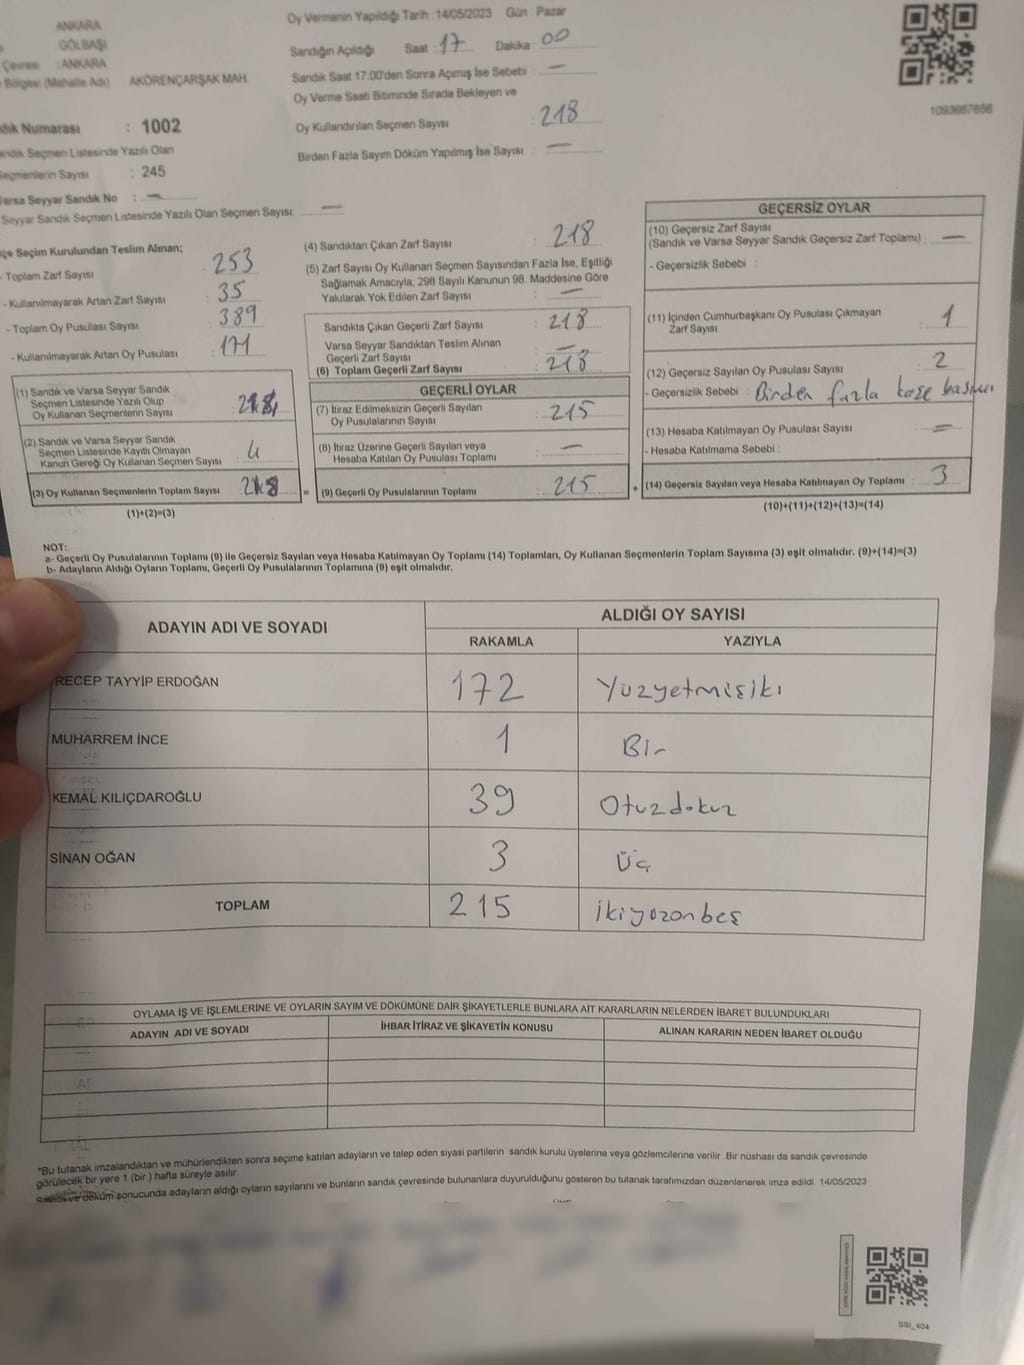 ANKARA
GÖLBAŞI
Çevresi : ANKARA
Bölgesi (Mahalle Adı) AKÖRENÇARŞAK MAH.
Sandık Numarası : 1002
Sandık Seçmen Listesinde Yazılı Olan
Seçmenlerin Sayısı : 245
Varsa Seyyar Sandık No : —
Seyyar Sandık Seçmen Listesinde Yazılı Olan Seçmen Sayısı: —
Oy Vermenin Yapıldığı Tarih : 14/05/2023 Gün : Pazar
Sandığın Açıldığı Saat : 17 Dakika : 00
Sandık Saat 17.00'den Sonra Açımış İse Sebebi : —
Oy Verme Saati Bitiminde Sırada Bekleyen ve
Oy Kullandırılan Seçmen Sayısı : 218
Birden Fazla Sayım Döküm Yapılmış İse Sayısı : —
1093667656
İlçe Seçim Kurulundan Teslim Alınan;
- Toplam Zarf Sayısı : 253
- Kullanılmayarak Artan Zarf Sayısı : 35
- Toplam Oy Pusulası Sayısı : 389
- Kullanılmayarak Artan Oy Pusulası : 171
(1) Sandık ve Varsa Seyyar Sandık
Seçmen Listesinde Yazılı Olup
Oy Kullanan Seçmenlerin Sayısı :
(2) Sandık ve Varsa Seyyar Sandık
Seçmen Listesinde Kayıtlı Olmayan
Kanun Gereği Oy Kullanan Seçmen Sayısı : 4
(3) Oy Kullanan Seçmenlerin Toplam Sayısı : 218
(1)+(2)=(3)
(4) Sandıktan Çıkan Zarf Sayısı : 218
(5) Zarf Sayısı Oy Kullanan Seçmen Sayısından Fazla İse, Eşitliği
Sağlamak Amacıyla; 298 Sayılı Kanunun 98. Maddesine Göre
Yakılarak Yok Edilen Zarf Sayısı : —
Sandıkta Çıkan Geçerli Zarf Sayısı : 218
Varsa Seyyar Sandıktan Teslim Alınan
Geçerli Zarf Sayısı : —
(6) Toplam Geçerli Zarf Sayısı : 218
GEÇERLİ OYLAR
(7) İtiraz Edilmeksizin Geçerli Sayılan
Oy Pusulalarının Sayısı : 215
(8) İtiraz Üzerine Geçerli Sayılan veya
Hesaba Katılan Oy Pusulası Toplamı : —
= (9) Geçerli Oy Pusulalarının Toplamı : 215 +
GEÇERSİZ OYLAR
(10) Geçersiz Zarf Sayısı
(Sandık ve Varsa Seyyar Sandık Geçersiz Zarf Toplamı) : —
- Geçersizlik Sebebi :
(11) İçinden Cumhurbaşkanı Oy Pusulası Çıkmayan
Zarf Sayısı : 1
(12) Geçersiz Sayılan Oy Pusulası Sayısı : 2
- Geçersizlik Sebebi : Birden fazla kaşe
(13) Hesaba Katılmayan Oy Pusulası Sayısı : —
- Hesaba Katılmama Sebebi :
(14) Geçersiz Sayılan veya Hesaba Katılmayan Oy Toplamı : 3
(10)+(11)+(12)+(13)=(14)
NOT:
a- Geçerli Oy Pusulalarının Toplamı (9) ile Geçersiz Sayılan veya Hesaba Katılmayan Oy Toplamı (14) Toplamları, Oy Kullanan Seçmenlerin Toplam Sayısına (3) eşit olmalıdır. (9)+(14)=(3)
b- Adayların Aldığı Oyların Toplamı, Geçerli Oy Pusulalarının Toplamına (9) eşit olmalıdır.
ADAYIN ADI VE SOYADI ALDIĞI OY SAYISI
RAKAMLA YAZIYLA
RECEP TAYYİP ERDOĞAN 172 Yüzyetmişiki
MUHARREM İNCE 1 Bir
KEMAL KILIÇDAROĞLU 39 Otuzdokuz
SİNAN OĞAN 3 Üç
TOPLAM 215 İkiyüzonbeş
OYLAMA İŞ VE İŞLEMLERİNE VE OYLARIN SAYIM VE DÖKÜMÜNE DAİR ŞİKAYETLERLE BUNLARA AİT KARARLARIN NELERDEN İBARET BULUNDUKLARI
ADAYIN ADI VE SOYADI İHBAR İTİRAZ VE ŞİKAYETİN KONUSU ALINAN KARARIN NEDEN İBARET OLDUĞU
*Bu tutanak imzalandıktan ve mühürlendikten sonra seçime katılan adayların ve talep eden siyasi partilerin sandık kurulu üyelerine veya gözlemcilerine verilir .Bir nüshası da sandık çevresinde
görülecek bir yere 1 (bir ) hafta süreyle asılır.
ve döküm sonucunda adayların aldığı oyların sayılarını ve bunların sandık çevresinde bulunanlara duyurulduğunu gösteren bu tutanak tarafımızdan düzenlenerek imza edildi. 14/05/2023